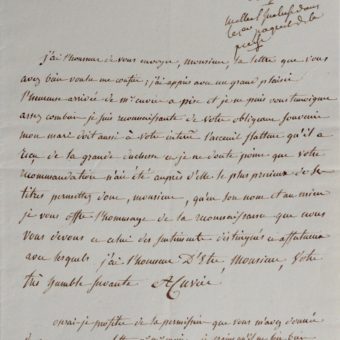 j'ai l'honneur de vous envoyer, Monsieur la lettre que vous
avez bien voulu me confier; j'ai appris avec un grand plaisir
l'heureuse arrivée de Mr Cuvier a pise et je ne puis vous temoigner
assez combien je suis reconnaissante de votre obligeant souvenir
mon mari doit aussi à votre interet l'accueil flatteur qu'il a
reçu de la grande duchesse et je ne doute point que votre
recommandation n'ait été auprès d'elle le plus precieux de ses
titres permettez donc, monsieur, qu'en son nom et au mien
je vous offre l'hommage de la reconnaissance que nous
vous devons et celui des sentiments distingués et affectueux
avec lesquels j'ai l'honneur D'Etre, Monsieur, Votre
très humble servante Cuvier
oserai-je profiter de la permission que vous m'avez donnée